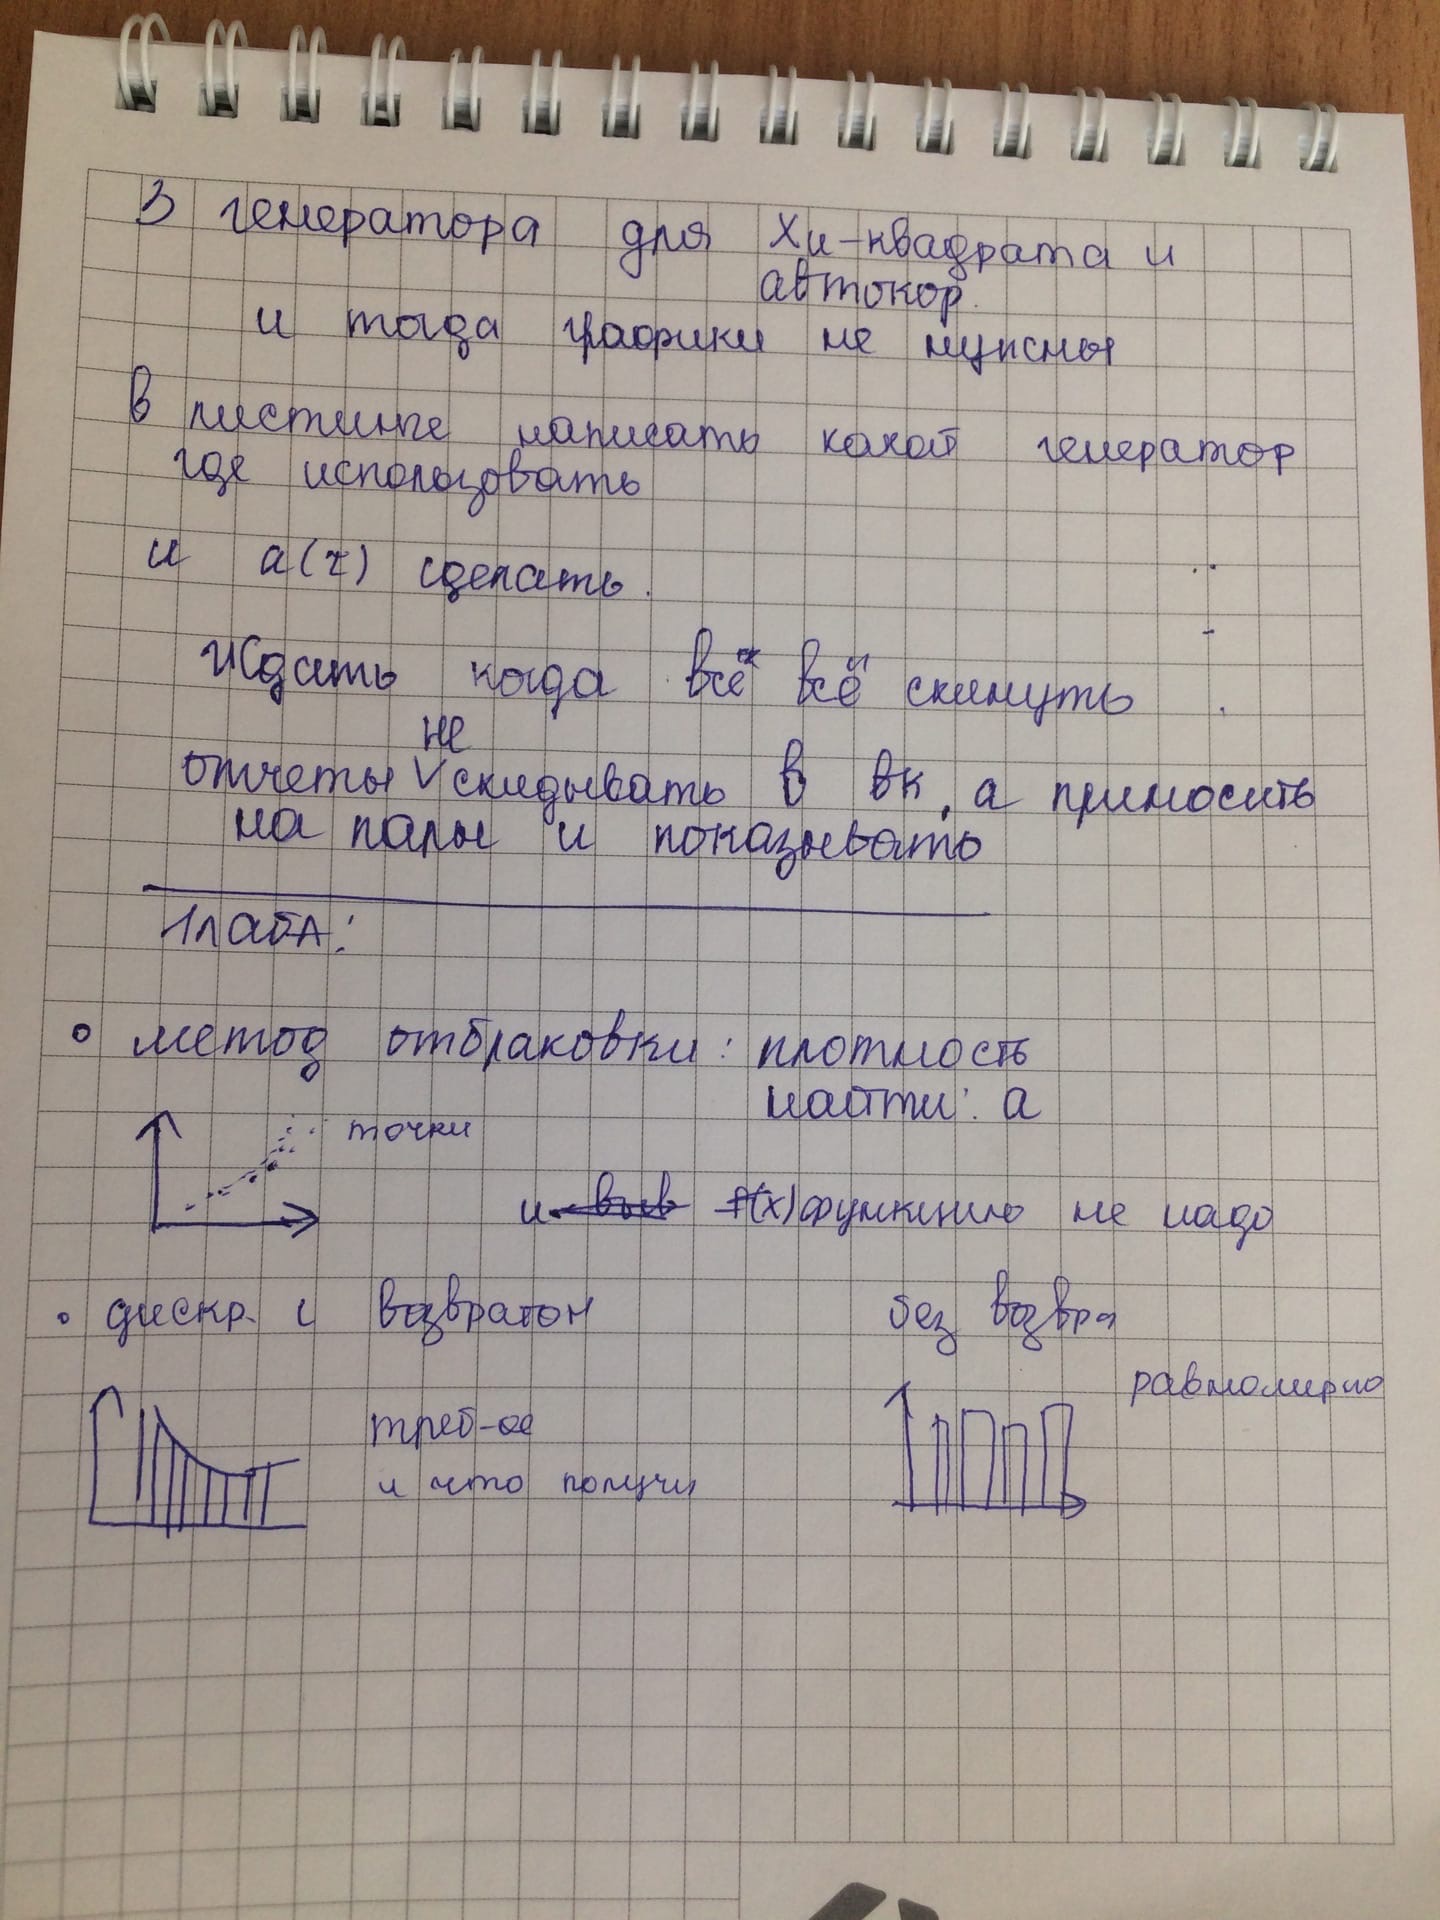 3 генератора для Хи-квадрата и
автокор.
и тогда графики не нужны
в листинге написать какой генератор
где использовать
и a(τ) сделать.
Ждать когда все всё скинуть
не
отчеты V скидывать в вк, а приносить
на пары и показывать
1 лаба:
• метод отбраковки: плотность
найти: а
точки
и f(x) функцию не надо
• дискр. с возвратом без возвра
равномерно
треб-ое
и что получи